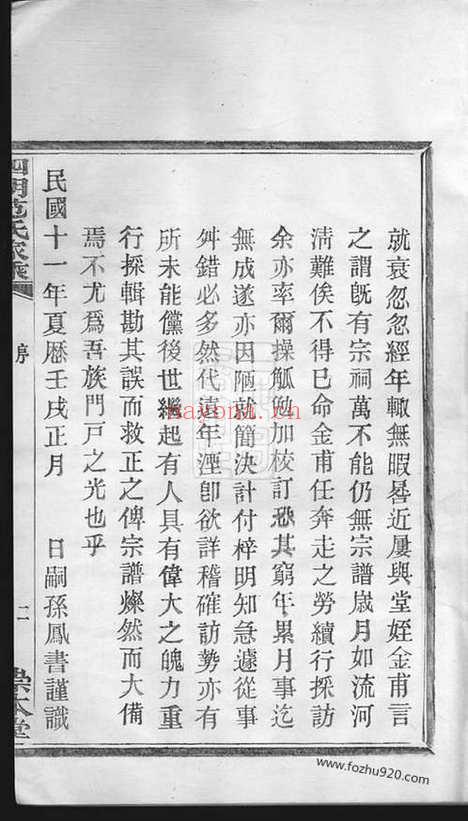 就衰忽忽經年輙無暇晷近屢與堂姪金甫言
之謂旣有宗祠萬不能仍無宗譜歲月如流河
淸難俟不得已命金甫任奔走之勞續行採訪
余亦率爾操觚勉加校訂恐其窮年累月事迄
無成遂亦因陋就簡決計付梓明知急遽從事
舛錯必多然代遠年湮卽欲詳稽確訪勢亦有
所未能儻後世繼起有人具有偉大之魄力重
行採輯勘其誤而救正之俾宗譜燦然而大備
焉不尤爲吾族門戸之光也乎
民國十一年夏歷壬戌正月 日嗣孫鳳書謹識
四明范氏家乘 序 二 崇本堂
nayona.cn
www.fozhu920.com